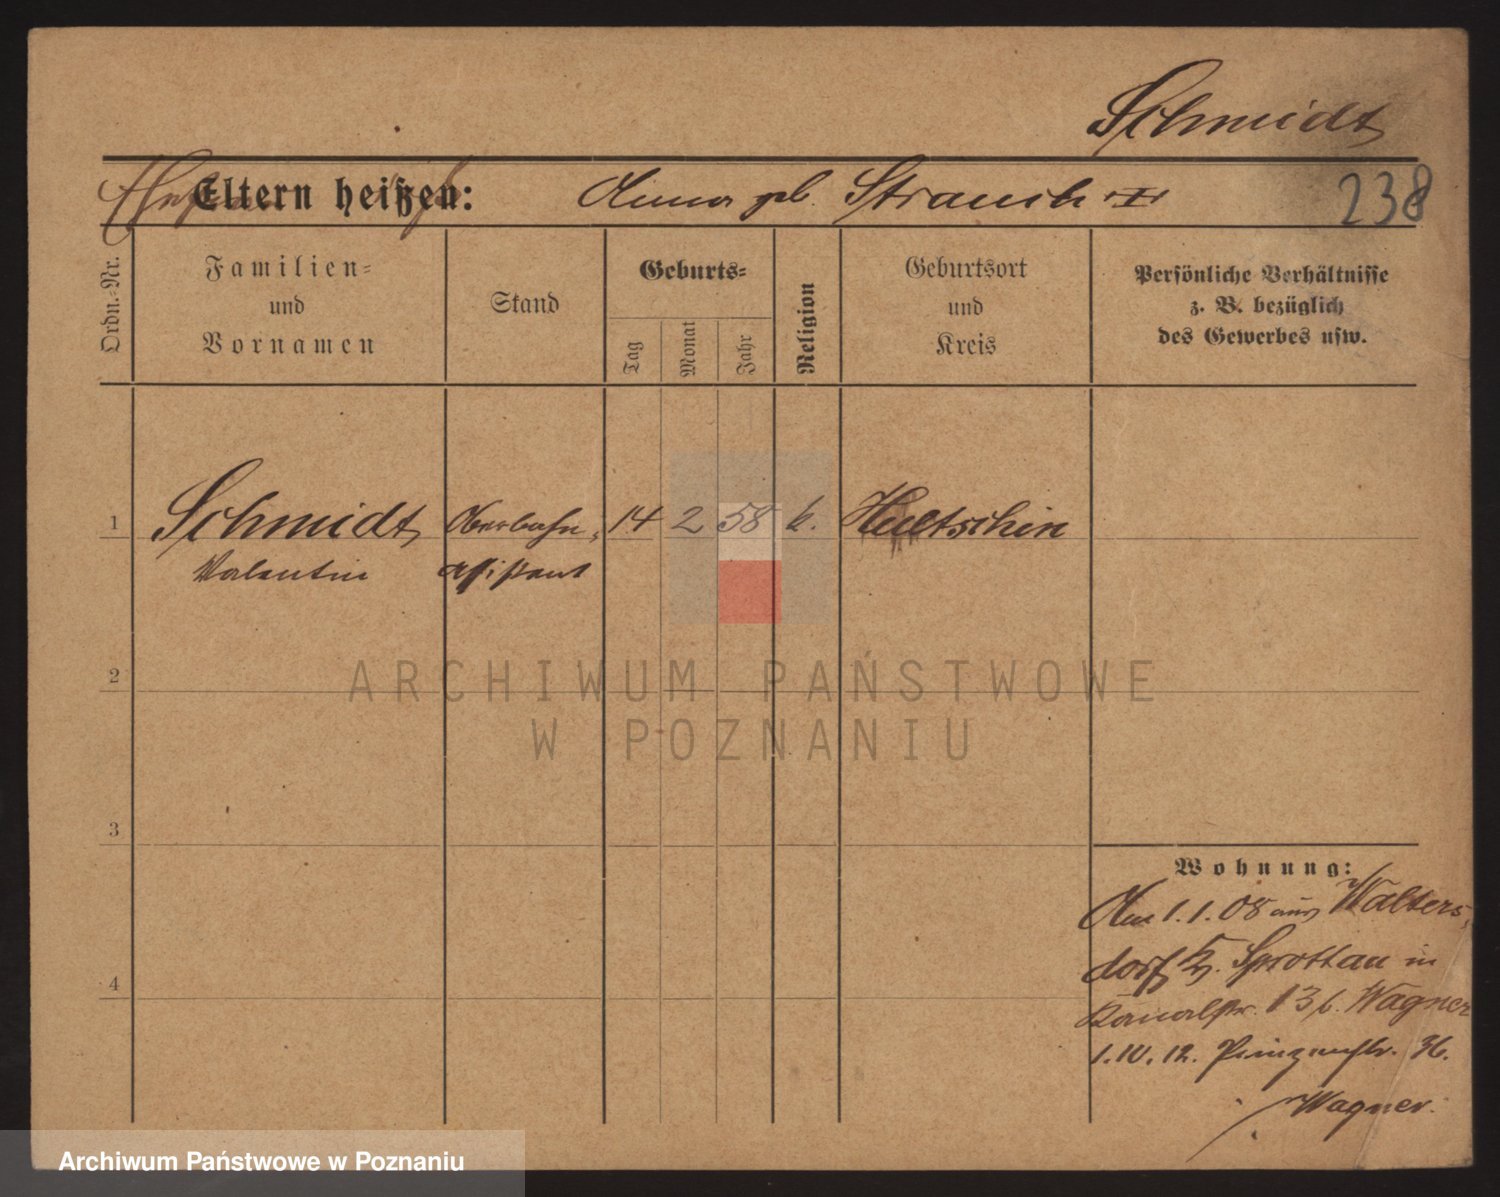 Schmidt
Eltern heißen: Anna geb. Strauch
238
Ordn.-Nr.
Familien-
und
Vornamen
Stand
Geburts-
Tag
Monat
Jahr
Religion
Geburtsort
und
Kreis
Persönliche Verhältnisse
z. B. bezüglich
des Gewerbes usw.
1 Schmidt Oberbahn- 14 2 58 k. Hultschin
Valentin assistent
2
3
4
Wohnung:
Am 1.1.08 aus Walters-
dorf Kr. Sprottau in
Kanalstr. 13 b. Wagner
1.10.12. Prinzenstr. 36.
Wagner.
ARCHIWUM PAŃSTWOWE
W POZNANIU
Archiwum Państwowe w Poznaniu